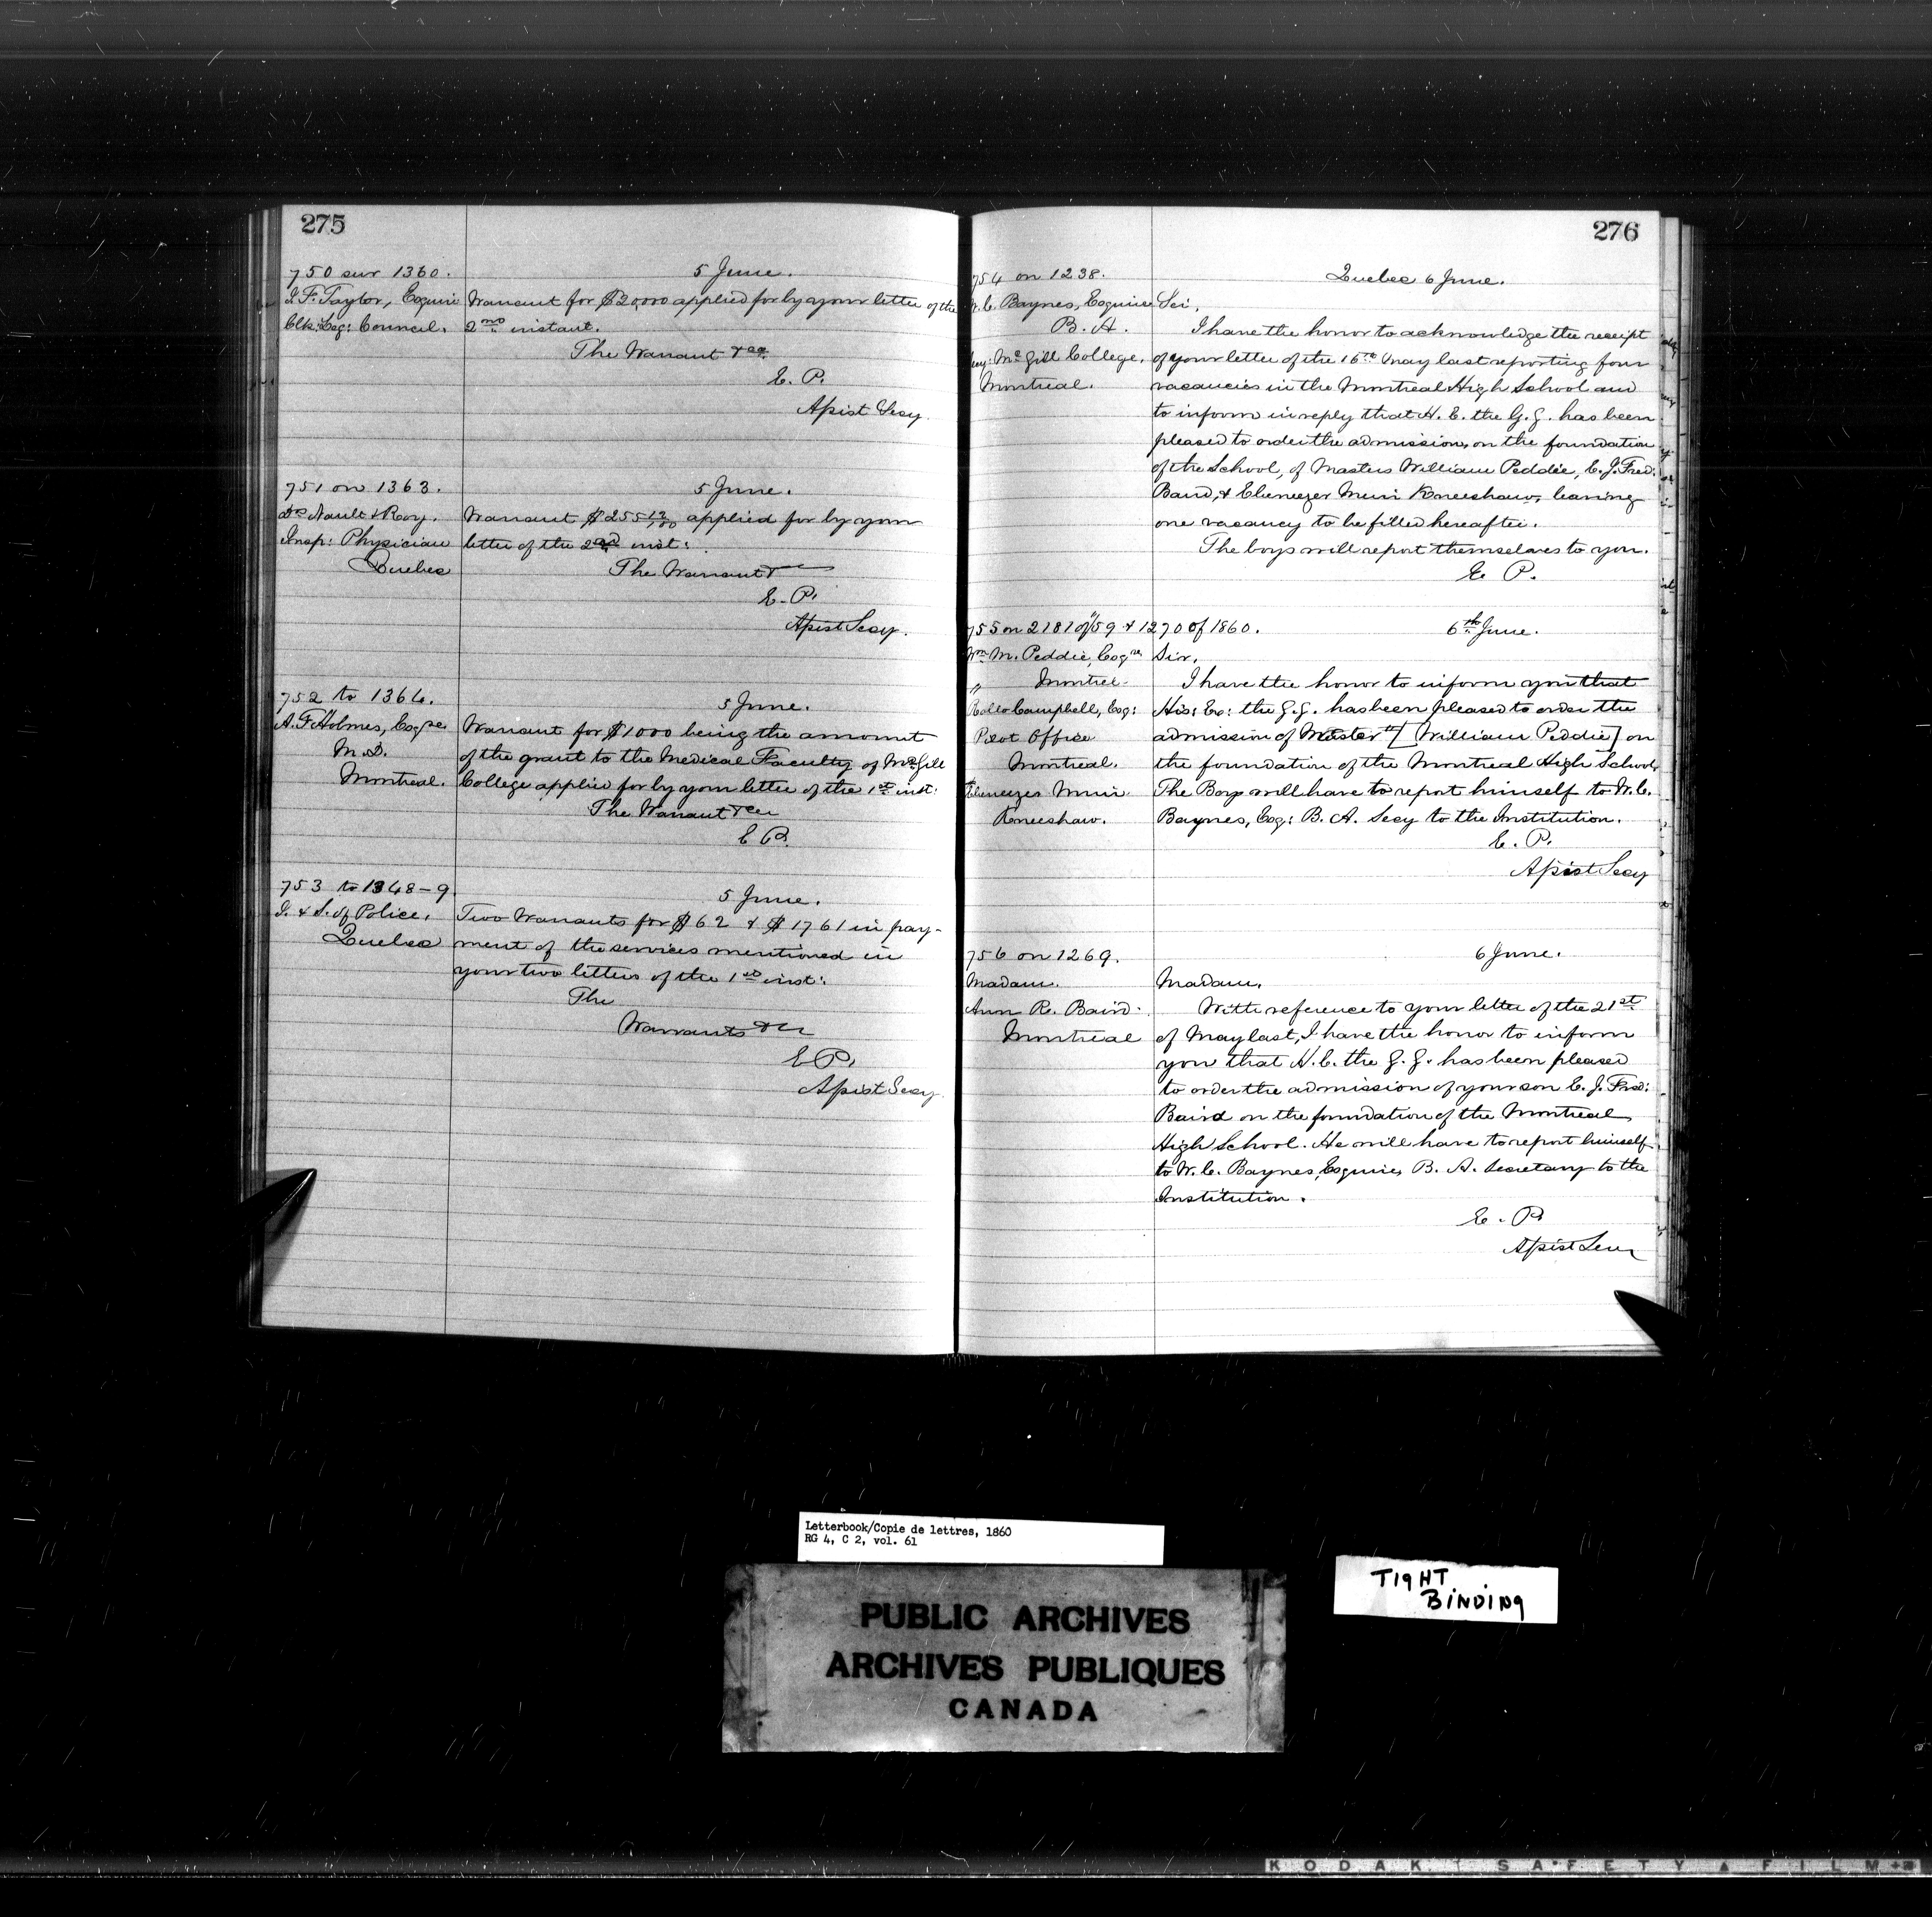 275
750 sur 1360.
5 June.
J. F. Taylor, Esquire
Clk: Leg: Council.
Warrant for $20,000 applied for by your letter of the
2nd instant.
The Warrant &ca
E. P.
Assist Secy.
751 on 1363.
5 June.
Drs Nault & Roy.
Insp: Physician
Quebec
Warrant $255 12/100 applied for by your
letter of the 2nd inst:
The Warrant
E. P.
Assist Secy.
752 to 1364.
5 June.
A. F. Holmes, Esqre
M.D.
Montreal.
Warrant for $1000 being the amount
of the grant to the Medical Faculty of McGill
College applied for by your letter of the 1st inst:
The Warrant &ca
E P.
753 to 1348-9
5 June.
I. & S. of Police.
Quebec
Two Warrants for $62 & $1761 in pay-
ment of the services mentioned in
your two letters of the 1st inst:
The
Warrants &c
E P.
Assist Secy
276
754 on 1238.
Quebec 6 June.
W. C. Baynes, Esquire
B. A.
Secy: McGill College.
Montreal.
Sir,
I have the honor to acknowledge the receipt
of your letter of the 16th May last reporting four
vacancies in the Montreal High School and
to inform in reply that H. E. the G. G. has been
pleased to order the admission, on the foundation
of the School, of Masters William Peddie, C. J. Fred:
Baird, & Ebeneezer Muir Kneeshaw, leaving
one vacancy to be filled hereafter.
The boys will report themselves to you.
E. P.
755 on 2181 of 59 & 1270 of 1860.
6th June.
Wm M. Peddie, Esqre
" Montreal
Rollo Campbell, Esq:
Pilot Office
Montreal.
Ebeneezer Muir
Kneeshaw.
Sir,
I have the honor to inform you that
His: Ex: the G. G. has been pleased to order the
admission of Master [William Peddie] on
the foundation of the Montreal High School,
The Boys will have to report himself to W. C.
Baynes, Esq: B. A. Secy to the Institution.
E. P.
Assist Secy
756 on 1269.
6 June.
Madam.
Ann R. Baird.
Montreal
Madam,
With reference to your letter of the 21st
of May last, I have the honor to inform
you that H. E. the G. G. has been pleased
to order the admission of your son C. J. Fred:
Baird on the foundation of the Montreal
High School. He will have to report himself
to W. C. Baynes, Esquire, B. A. Secretary to the
Institution.
E. P.
Assist Secy
Letterbook/Copie de lettres, 1860
RG 4, C 2, vol. 61
TIGHT
BINDING
PUBLIC ARCHIVES
ARCHIVES PUBLIQUES
CANADA
KODAK SAFETY FILM